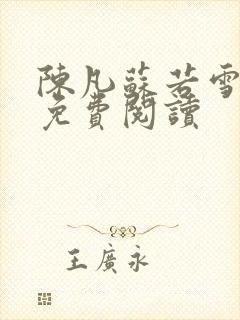 陳凡蘇若雪
免費閱讀
王廣永